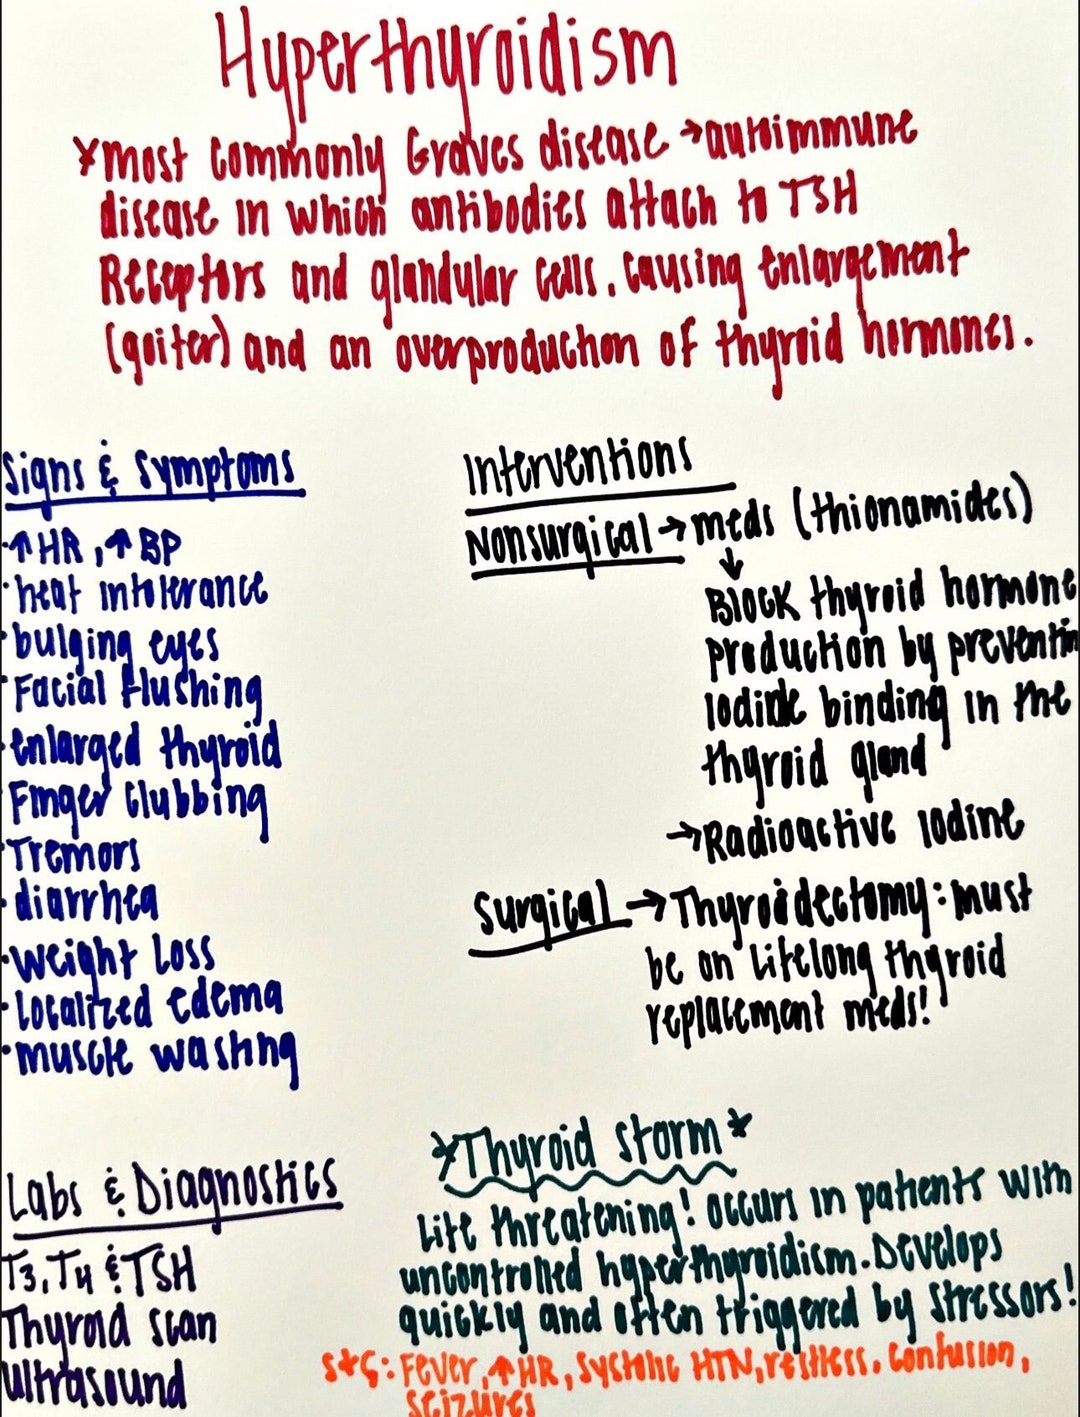 Hyperthyroidism
*most commonly Graves disease → autoimmune
disease in which antibodies attach to TSH
Receptors and glandular cells. causing enlargement
(goiter) and an overproduction of thyroid hormones.
Signs & Symptoms
·↑HR, ↑BP
·heat intolerance
·bulging eyes
·Facial flushing
·enlarged thyroid
·Finger clubbing
·Tremors
·diarrhea
·weight loss
·localized edema
·muscle wasting
Interventions
Nonsurgical → meds (thionamides)
↓
Block thyroid hormone
production by preventin
Iodide binding in the
thyroid gland
→ Radioactive Iodine
Surgical → Thyroidectomy: must
be on lifelong thyroid
replacement meds!
Labs & Diagnostics
T3, T4 & TSH
Thyroid scan
ultrasound
*Thyroid storm*
Life threatening! occurs in patients with
uncontrolled hyperthyroidism. Develops
quickly and often triggered by stressors!
s+s: Fever, ↑HR, systolic HTN, restless. confusion,
seizures